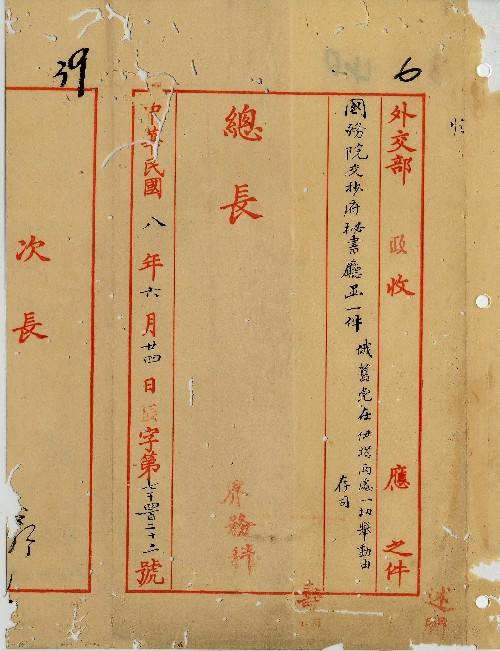 6
外交部 收 應 之件
國務院交抄府祕書廳函一件 俄舊党在伊塔兩處一切舉動由
存司
總長
界務科
中華民國八年六月廿四日 字第七千四百二十二號
39
次長